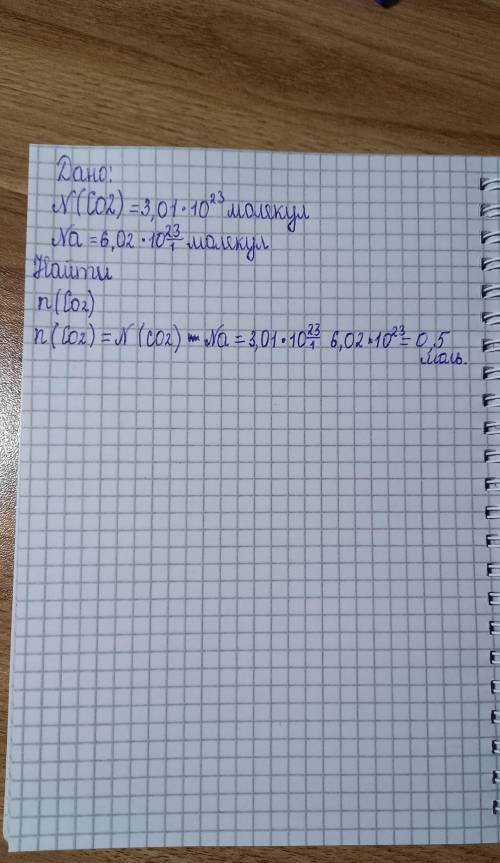 Дано:
N(CO2) = 3,01 · 10²³ молекул
Na = 6,02 · 10 23/1 молекул
Найти
n(CO2)
n(CO2) = N(CO2) - Na = 3,01 · 10 23/1 6,02 · 10²³ = 0,5
моль.